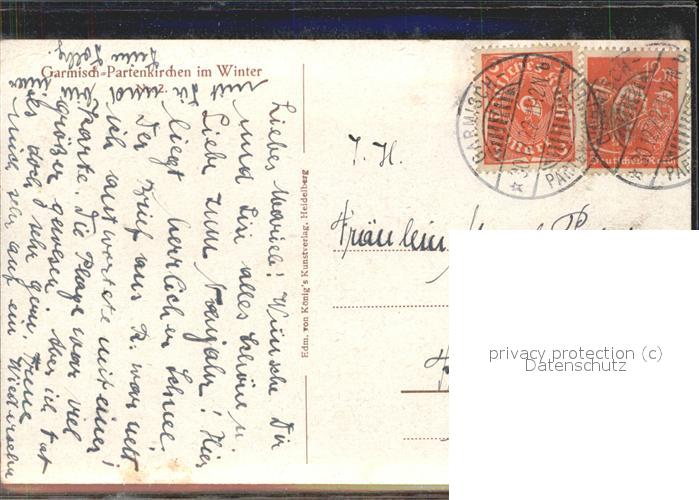 Garmisch-Partenkirchen im Winter
No. 2.
Liebes Mariele! Wünsche Dir
und Lisi alles Schöne u.
Liebe zum Neujahr! Hier
liegt herrlicher Schnee.
Der Brief aus R. war nett
ich antwortete mit einer
Karte. Die Plage war viel
größer gewesen. Aber ich tat
es doch sehr gern. Freue
mich sehr auf ein Wiedersehn
mit Dir und
Deine
Edm. von König's Kunstverlag, Heidelberg
I. H.
Fräulein
GARMISCH
PARTENKIRCHEN
Deutsches Reich
12 M
privacy protection (c)
Datenschutz